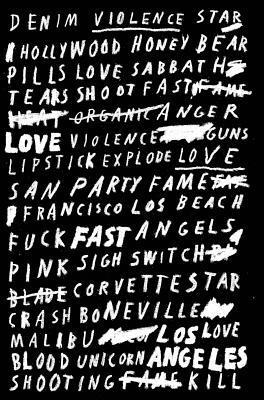 DENIM VIOLENCE STAR
HOLLYWOOD HONEY BEAR
PILLS LOVE SABBATH
TEARS SHOOT FAST FAME
HEAT ORGANIC ANGER
LOVE VIOLENCE GUNS
LIPSTICK EXPLODE LOVE
SAN PARTY FAME
FRANCISCO LOS BEACH
FUCK FAST ANGELS
PINK SIGH SWITCH
BLADE CORVETTE STAR
CRASH BONEVILLE
MALIBU LOS LOVE
BLOOD UNICORN ANGELES
SHOOTING FAME KILL